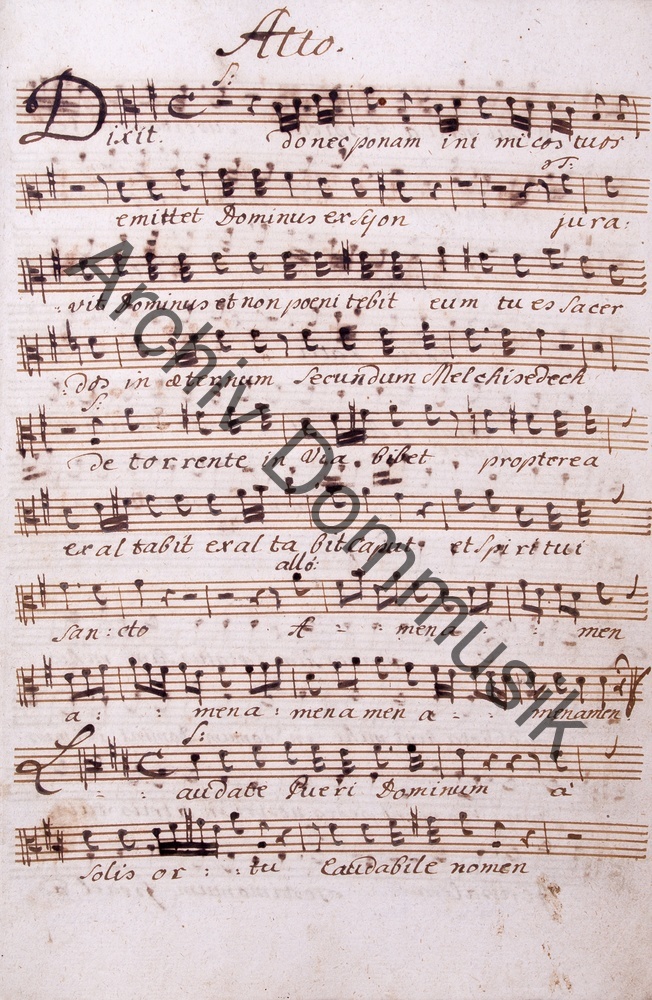 Alto.
S:
Dixit. donec ponam inimicos tuos
S:
emittet Dominus ex Syon jura:
vit Dominus et non poenitebit eum tu es sacer
dos in æternum secundum Melchisedech
S:
de torrente in Via bibet propterea
exaltabit exaltabit caput et spiritui
allo:
san: cto A - - mena - - men
a: - - mena: menamen a - - menamen
S:
Laudate Pueri Dominum à
solis or: - : tu laudabile nomen
Archiv Dommusik